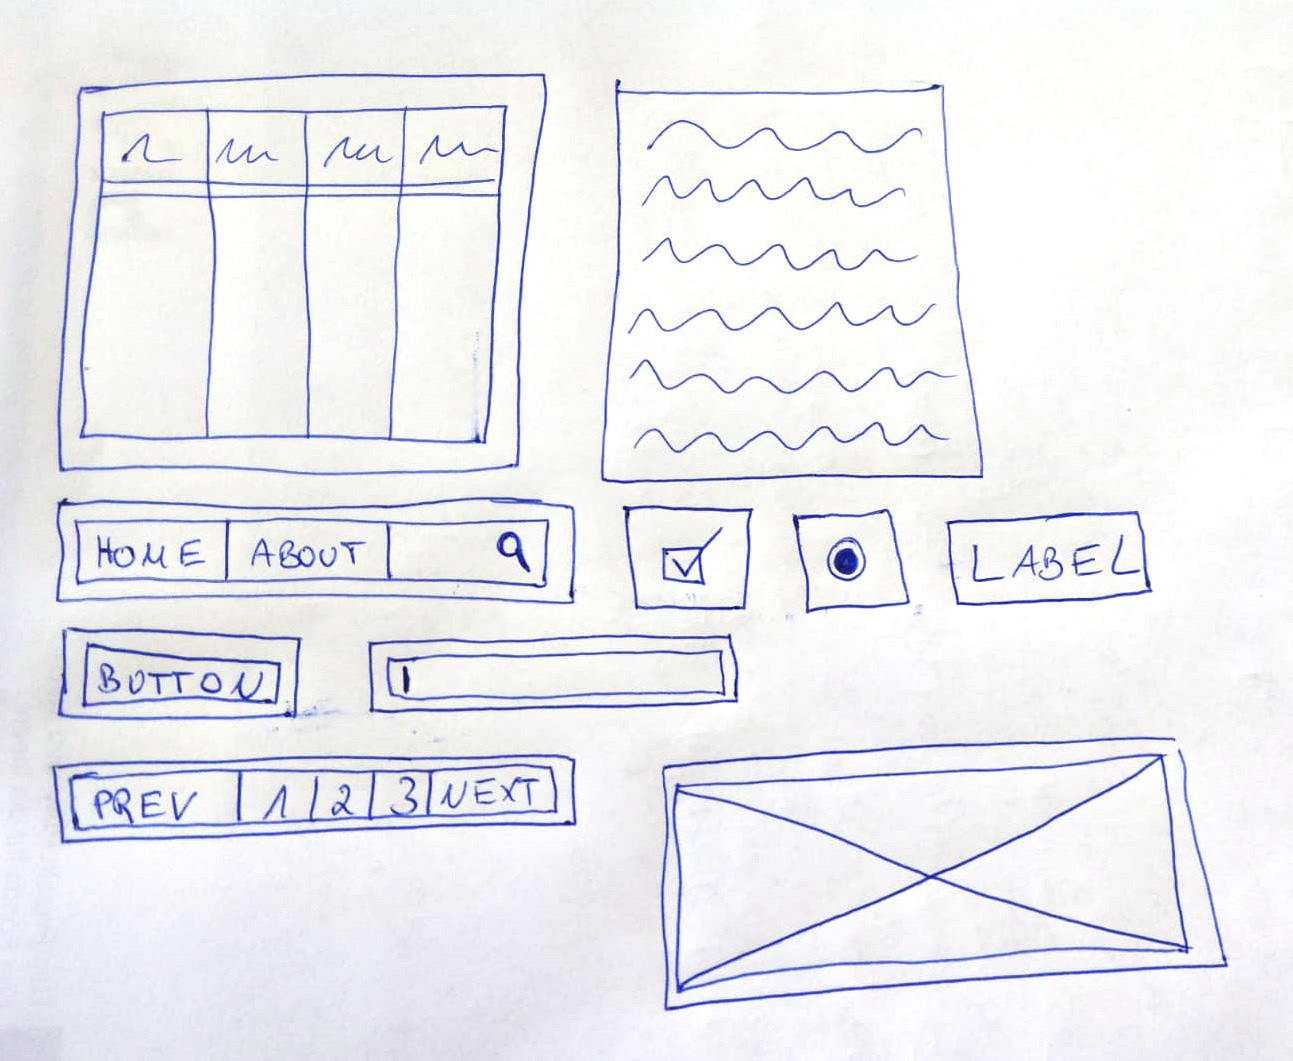 HOME ABOUT
LABEL
BUTTON
PREV 1 2 3 NEXT